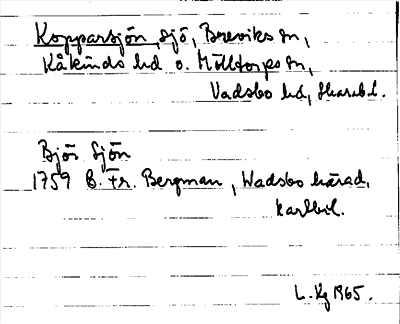 Kopparsjön, sjö, Breviks sn,
Kåkinds hd o. Mölltorps sn,
Vadsbo hd, Skarab. l.
Bjös Sjön
1759 B. Fr. Bergman, Wadsbo härad,
kartbil.
L. Kg 1965.